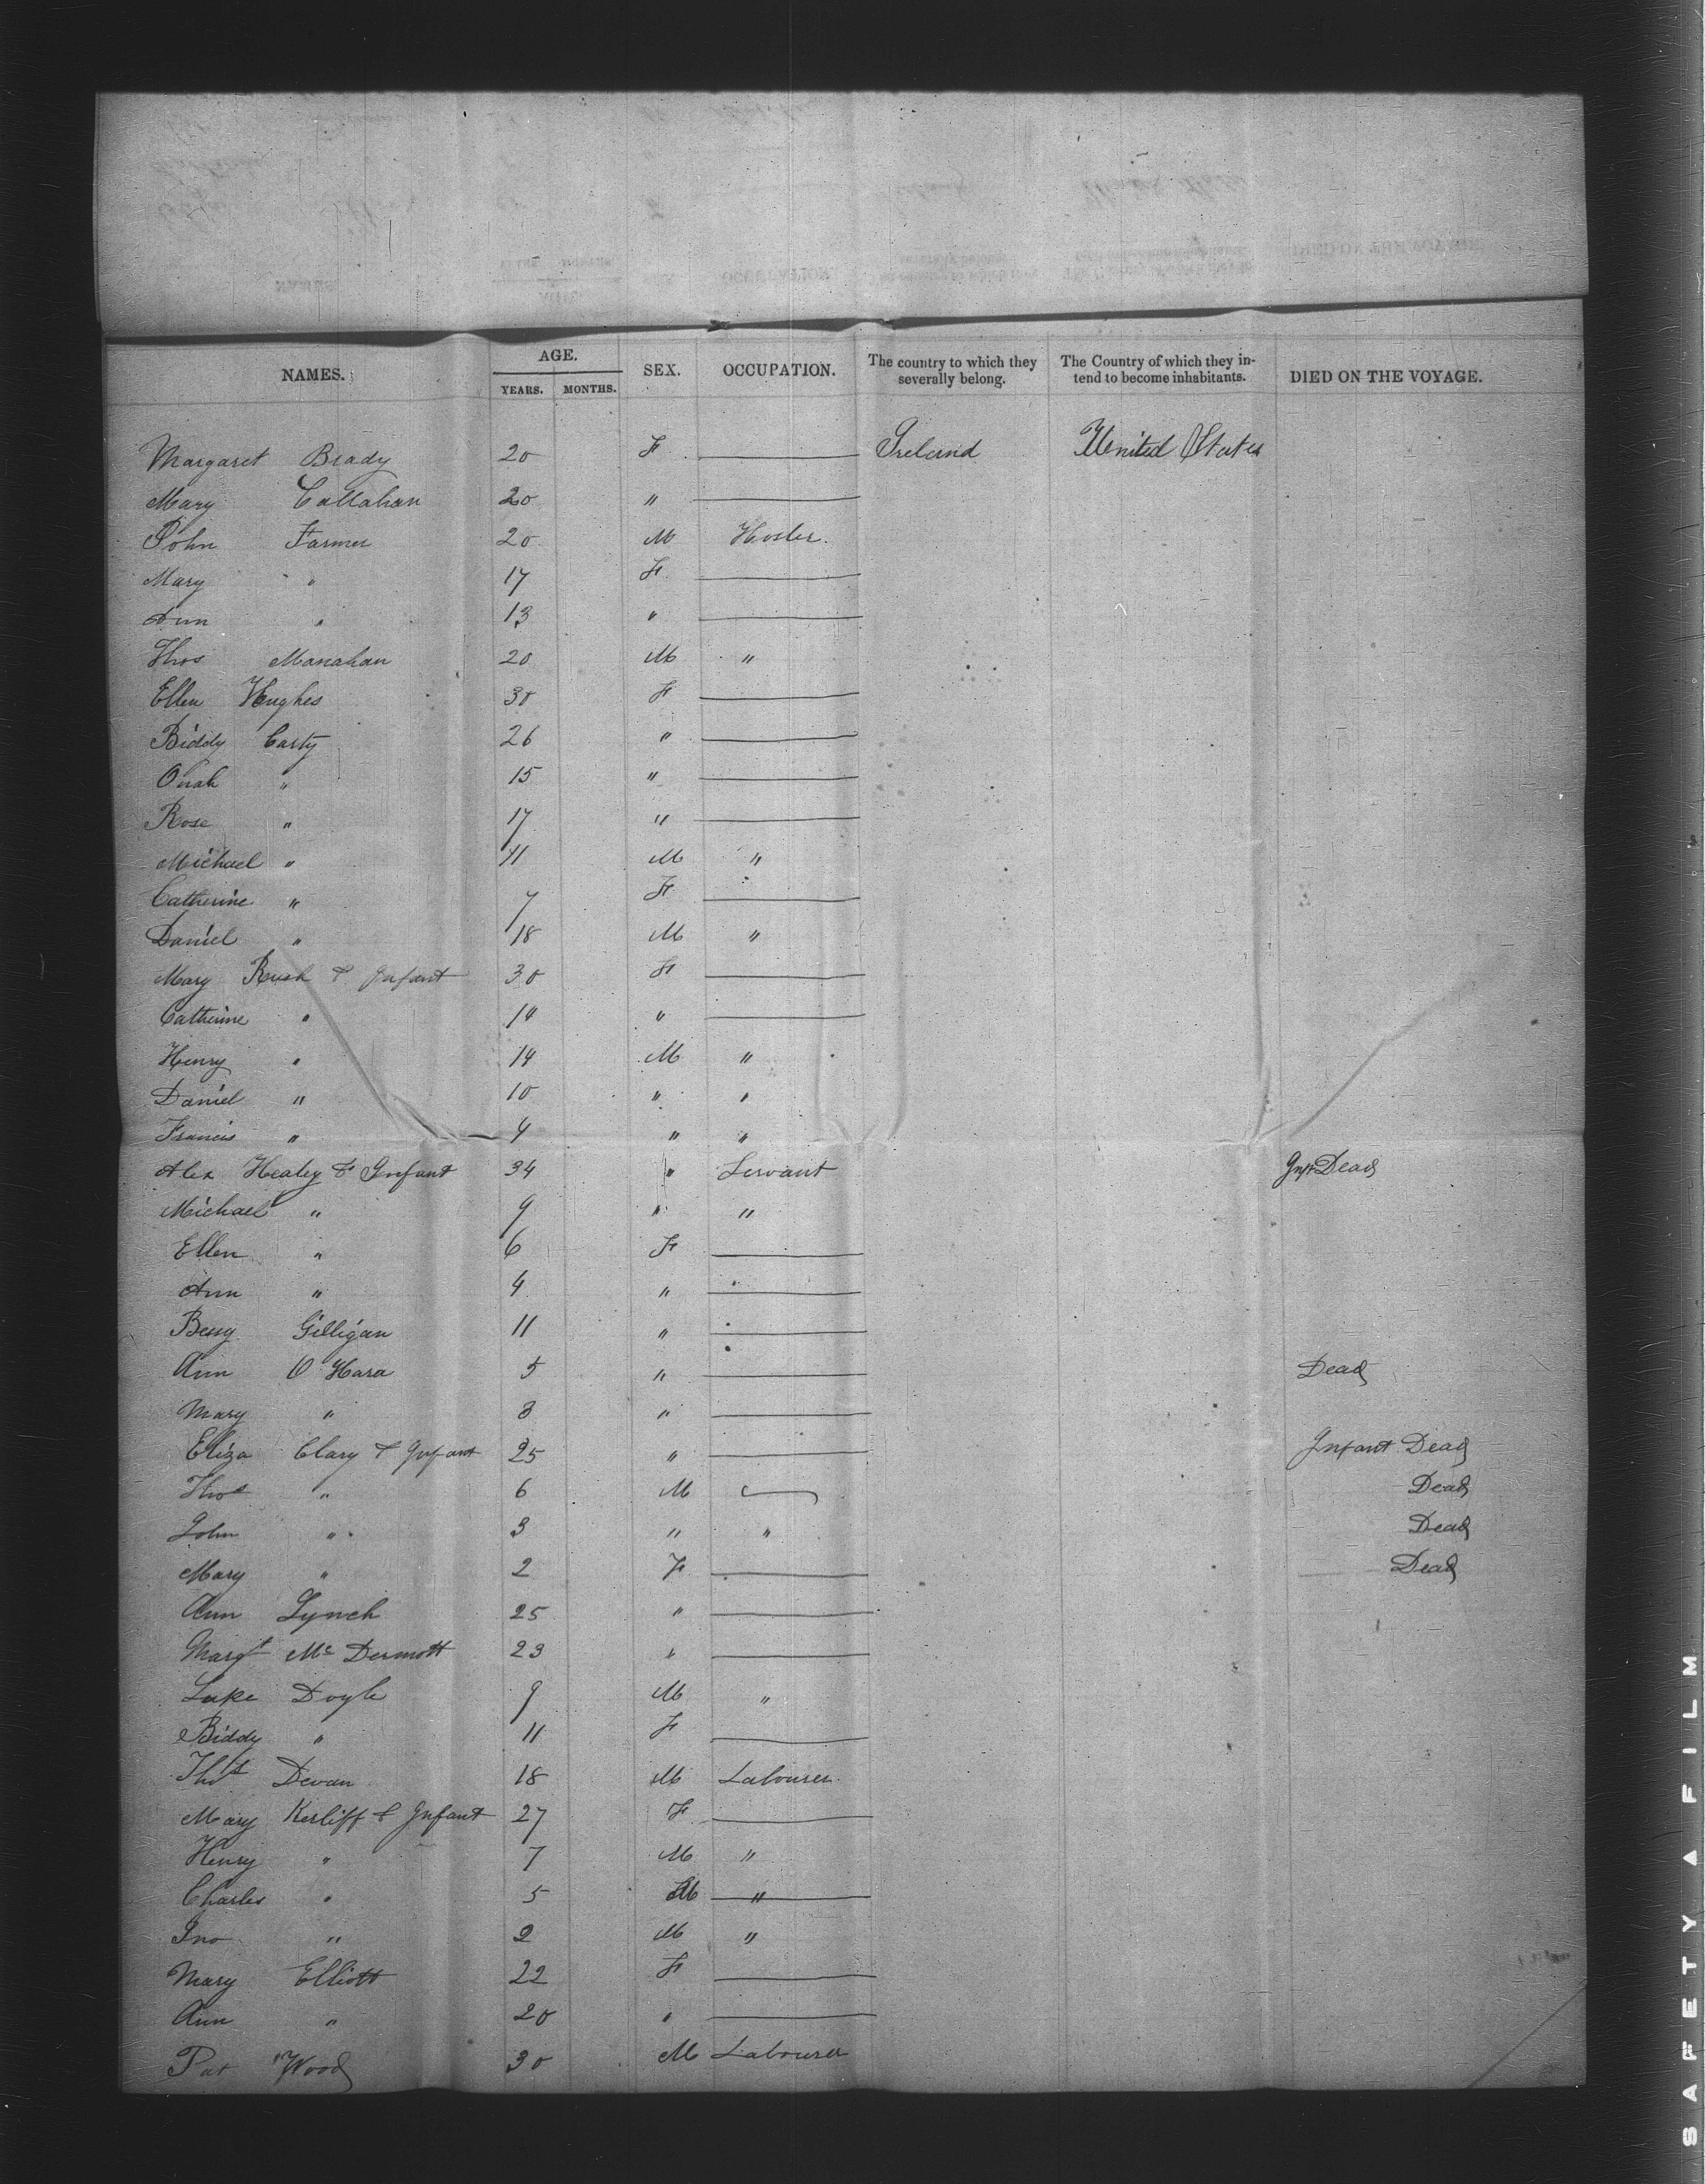 NAMES. AGE. SEX. OCCUPATION. The country to which they severally belong. The Country of which they intend to become inhabitants. DIED ON THE VOYAGE.
YEARS. MONTHS.
Margaret Brady 20 F Ireland United States
Mary Callahan 20 "
John Farmer 20 M Hosler.
Mary " 17 F
Ann " 13 "
Thos Manahan 20 M "
Ellen Hughes 30 F
Biddy Carty 26 "
Onah " 15 "
Rose " 17 "
Michael " 11 M "
Catherine " 7 F
Daniel " 18 M "
Mary Rush & Infant 30 F
Catherine " 14 "
Henry " 14 M "
Daniel " 10 " "
Francis " 4 " "
Alex Healey & Infant 34 " Servant Inft Dead
Michael " 9 " "
Ellen " 6 F
Ann " 4 "
Bessy Gilligan 11 "
Ann O Hara 5 " Dead
Mary " 3 "
Eliza Clary & Infant 25 " Infant Dead
Thos " 6 M Dead
John " 3 " " Dead
Mary " 2 F Dead
Ann Lynch 25 "
Margt Mc Dermott 23 "
Luke Doyle 9 M "
Biddy " 11 F
Thos Devan 18 M Labourer
Mary Kerliff & Infant 27 F
Henry " 7 M "
Charles " 5 M "
Jno " 2 M "
Mary Elliott 22 F
Ann " 20 "
Pat Wood 30 M Labourer
SAFETY A FILM